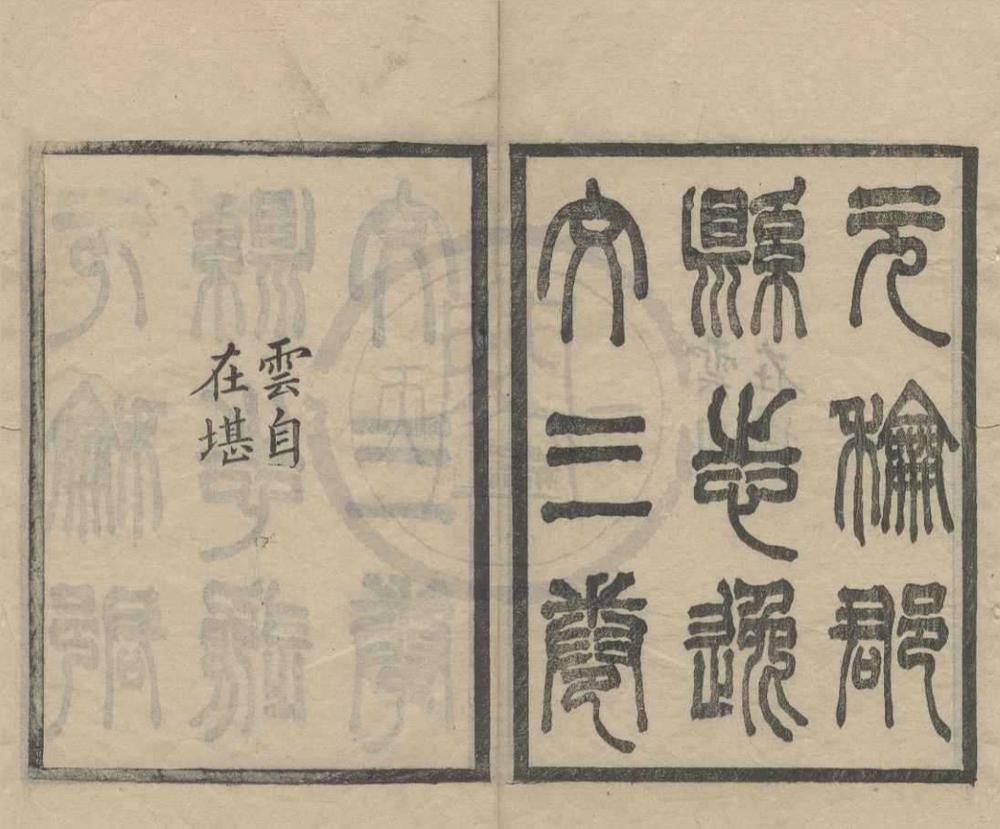 元龢郡
縣志逸
文三卷
雲自
在堪